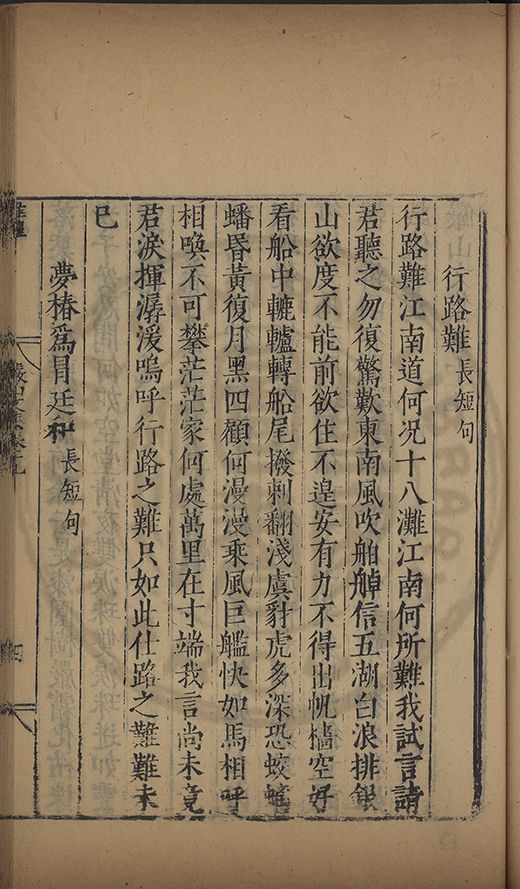 行路難 長短句
行路難江南道何况十八灘江南何所難我試言請
君聽之勿復驚歎東南風吹舶䑲信五湖白浪排銀
山欲度不能前欲住不遑安有力不得出帆檣空好
看船中轆轤轉船尾撥剌翻淺虞豺虎多深恐蛟螭
蟠昏黃復月黑四顧何漫漫乘風巨艦快如馬相呼
相喚不可攀茫茫家何處萬里在寸端我言尚未竟
君淚揮潺湲嗚呼行路之難只如此仕路之難難未
巳
夢椿爲冐廷和 長短句